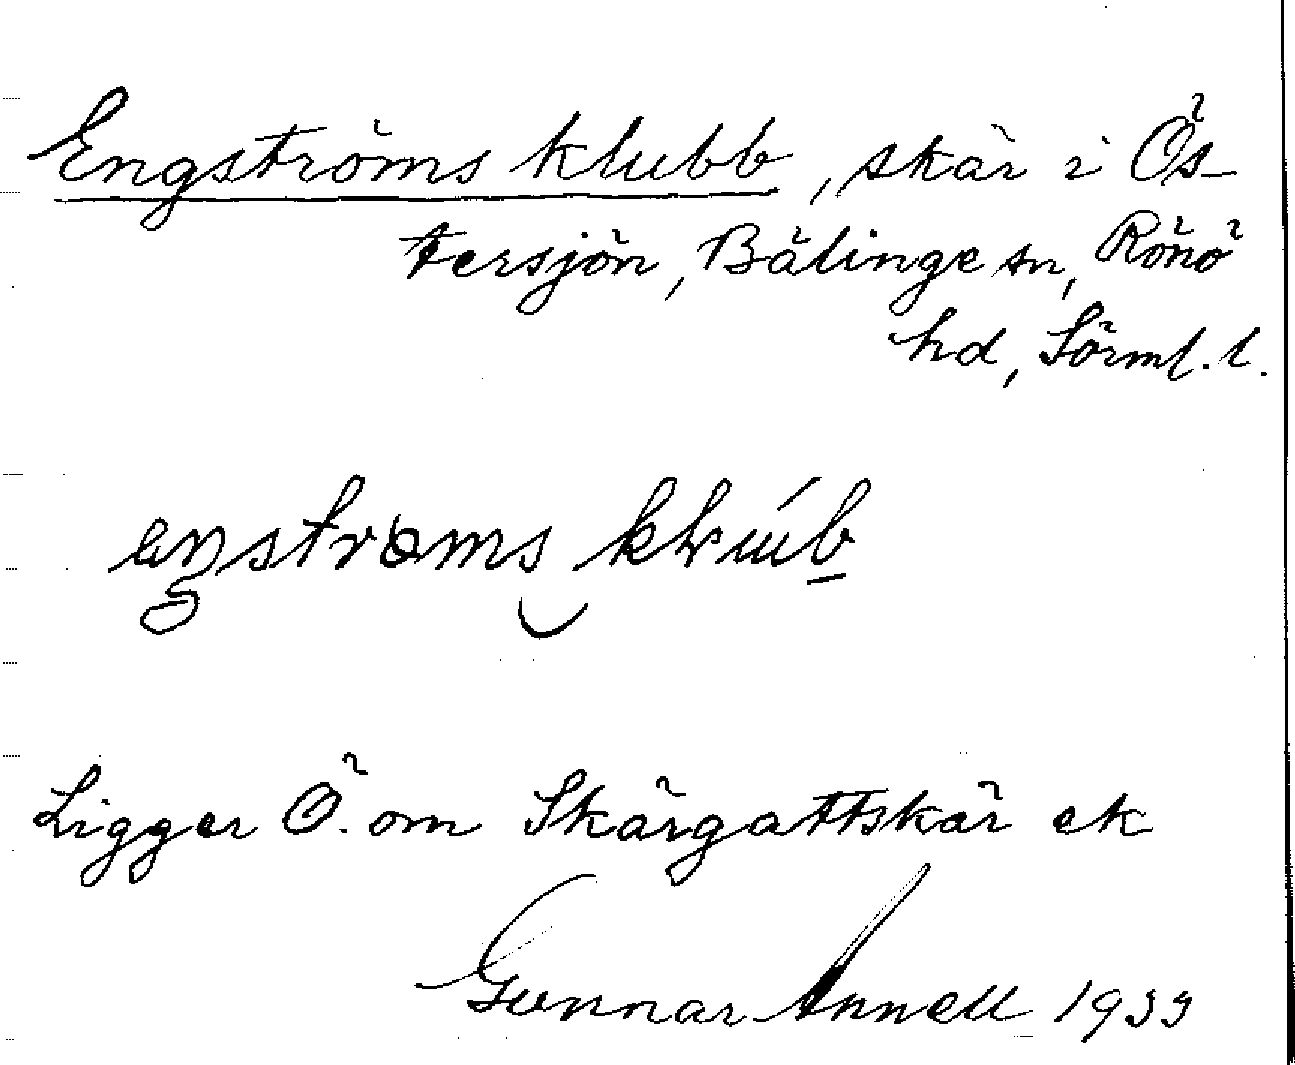 Engströms klubb, skär i Ös-
tersjön, Bälinge sn, Rönö
hd, Sörml. l.
Ligger Ö. om Skärgattskär ek
Gunnar Annell 1933